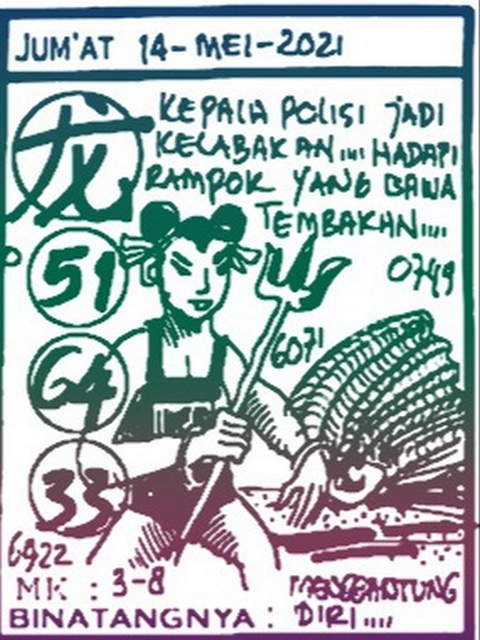 JUM'AT 14-MEI-2021
龙
KEPALA POLISI JADI
KELABAKAN.... HADAPI
RAMPOK YANG BAWA
TEMBAKAN....
51
0749
6071
64
33
6922
MK : 3-8
BINATANGNYA : MENGGANTUNG
DIRI....